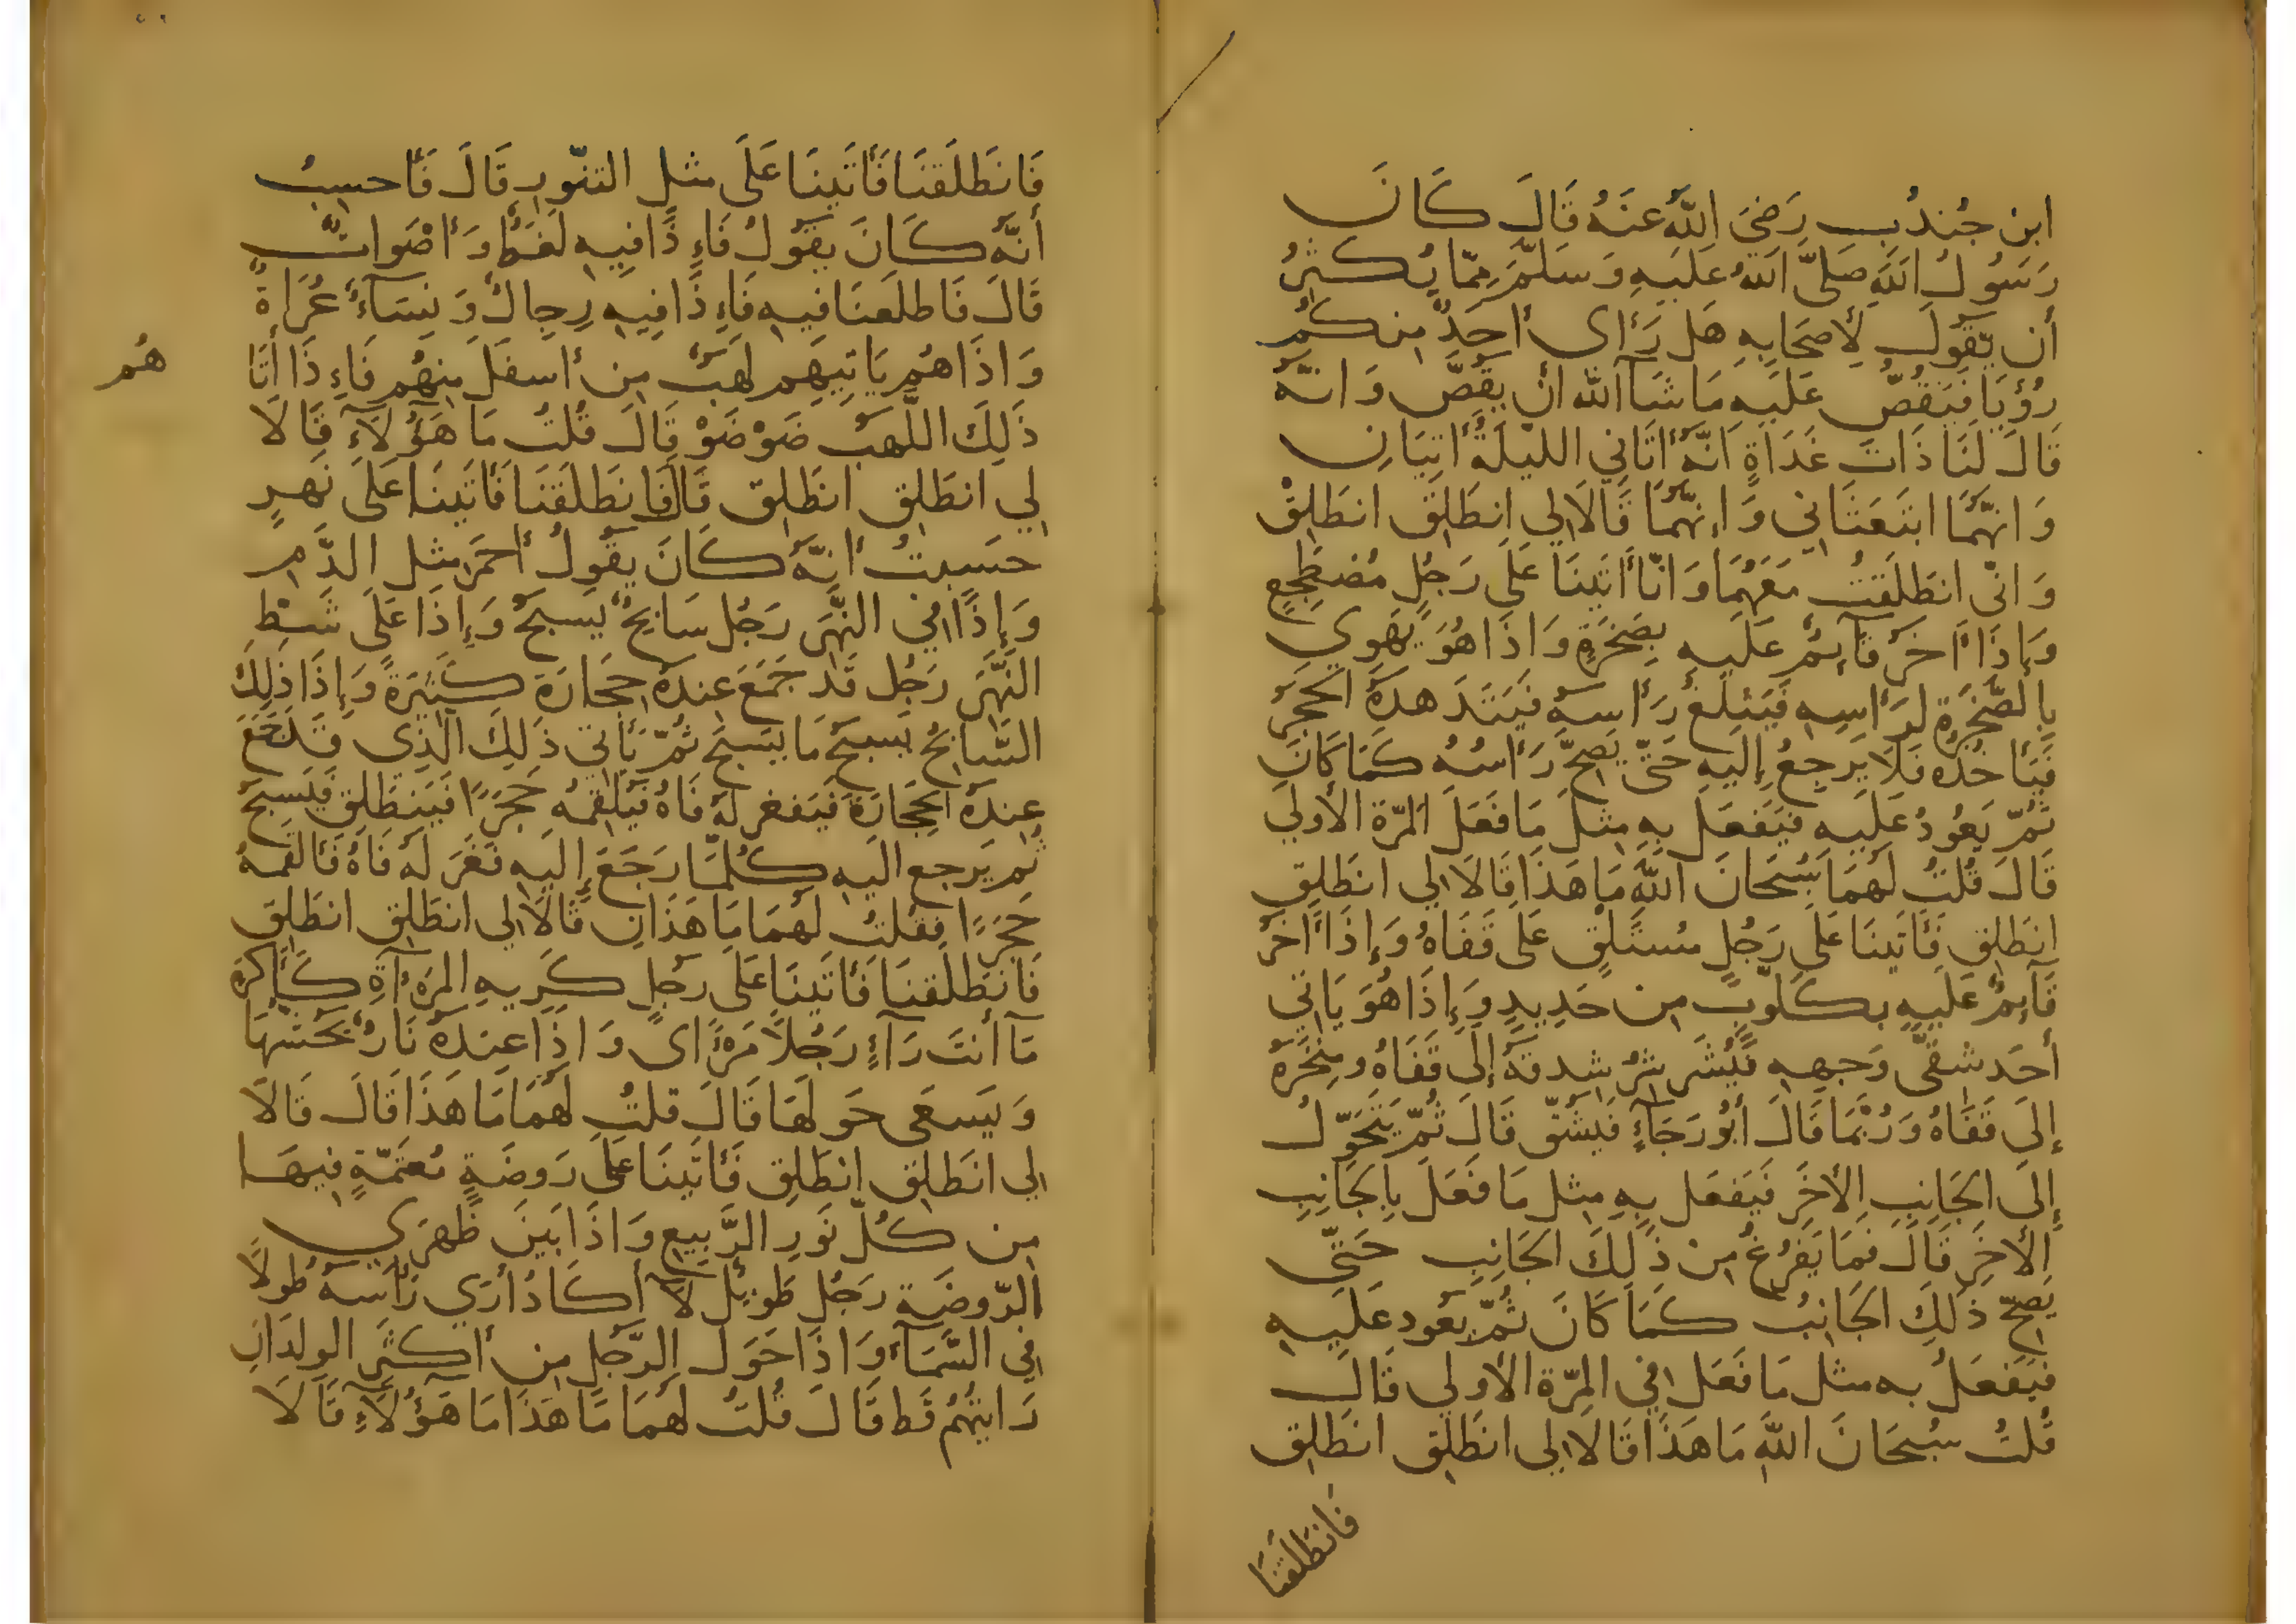 ابن جُندُبِ رَضِيَ اللَّهُ عَنَهُ قَالَ كَانَ
رَسُولُ اللَّهِ صَلَّى اللَّهُ عَلَيهِ وَسَلَّمَ مِمَّا يُكثِرُ
أَن يَقُولَ لِأَصحَابِهِ هَل رَأَى أَحَدٌ مِنكُم
رُؤيَا فَيَقُصُّ عَلَيهِ مَا شَآ اللَّه أَن يَقُصَّ وَانَّهُ
قَالَ لَنَا ذَاتَ غَدَاةٍ اِنَّهُ أَتَانِي اللَّيلَةَ أَتِيَانِ
وَانَّهُمَا ابتَعَثَانِي وَإِنَّهُمَا قَالَا لِي انطَلِق انطَلِقْ
وَانّي انطَلَقتُ مَعَهُمَا وَانَّا أَتَينَا عَلَى رَجُلٍ مُضطَجِعٍ
وَإِذَا أَخَرُ قَآئِمٌ عَلَيهِ بِصَخرَةٍ وَاذَا هُوَ يَهوِي
بِالصَّخرَةِ لِرَأسِهِ فَيَثلَغُ رَأسَهُ فَيَتَدَهدَهُ الحَجَرُ
فَيَأخُذُه فَلَا يَرجِعُ إِلَيهِ حَتَّى يَصِحَّ رَأسُهُ كَمَا كَانَ
ثُمَّ يَعُودُ عَلَيهِ فَيَفعَلُ بِهِ مِثلَ مَا فَعَلَ المَرَّةَ الأُولَى
قَالَ قُلتُ لَهُمَا سُبحَانَ اللَّهِ مَا هَذَا قَالَا لِي انطَلِقِ
انطَلِقِ فَأَتَينَا عَلَى رَجُلٍ مُستَلقٍ عَلَى قَفَاهُ وَإِذَا أَخَرُ
قَآئِمٌ عَلَيهِ بِكَلُّوبٍ مِن حَدِيدٍ وَإِذَا هُوَ يَاتِي
أَحَدَ شِقَّى وَجهِهِ فَيُشَرشِرُ شِدقَهُ إِلَى قَفَاهُ وَمِنخَرَهُ
إِلَى قَفَاهُ وَرُبَّمَا قَالَ أَبُو رَجَآءٍ فَيَشُقُّ قَالَ ثُمَّ يَتَحَوَّلُ
إِلَى الجَانِبِ الأَخَرِ فَيَفعَل بِهِ مِثل مَا فَعَلَ بِالجَانِبِ
الأَخَرِ قَالَ فَمَا يَفرُغُ مِن ذَلِكَ الجَانِبِ حَتَّى
يَصِحَّ ذَلِكَ الجَانِبُ كَمَا كَانَ ثُمَّ يَعُود عَلَيهِ
فَيَفعَلُ به مثل مَا فَعَل فِي المَرَّةِ الأولى قَالَ
قُلتُ سُبحَانَ اللَّهِ مَا هَذَا قَالَا لِي انطَلِق انطَلِق
فَانطَلَقنَا
فَانطَلَقنَا فَأَتَينَا عَلَى مثل التنّورِ قَالَ فَأَحسِبُ
أَنَّهُ كَانَ يَقُولُ فَاءِذَا فِيهِ لَغَطٌ وَأَصْوَاتٌ
قَالَ فَاطلَعنَا فيهِ فَاءِذَا فِيهِ رِجَالٌ وَنِسَآءٌ عُرَاةٌ
وَاذَا هُم يَاتِيهِم لَهَبٌ مِن أَسفَلَ مِنهُم فَاءِذَا أَتَا
هُم
ذَلِكَ اللَّهَبُ ضَوْضَوْ قَالَ قُلتُ مَا هَؤُلَآءِ قَالَا
لِي انطَلِق انطَلِق قَالَ فَانطَلَقنَا فَأَتَينَا عَلَى نَهرٍ
حَسِبتُ أَنَّهُ كَانَ يَقُولُ أَحمَرَ مثل الدَّمِ
وَإِذَا فِي النَّهَرِ رَجُل سَابِحٌ يَسبَحُ وَإِذَا عَلَى شَطِ
النَّهَرِ رَجُل قَد جَمَعَ عِندَهُ حِجَارَةً كَثِيرَةً وَإِذَا ذَلِكَ
السَّابِحُ يَسبَحُ مَا يَسبَحُ ثُمَّ يَأتِي ذَلِكَ الَّذِى قَد جَمَعَ
عِندَهُ الحِجَارَةَ فَيَفغَر لَهُ فَاهُ فَيُلقِمُه حَجَرًا فَيَنطَلِقُ فَيَسبَحُ
ثم يَرجع اليهِ كُلَّمَا رَجَعَ إِلَيهِ فَغَرَ لَهُ فَاهُ فَأَلقَمَهُ
حَجَرًا فقُلتُ لَهُمَا مَا هَذَانِ قَالَا لِي انطَلِق انطَلِق
فَانطَلَقنَا فَأَتَينَا عَلَى رجُلٍ كَرِيهِ المَرءَآةِ كَأَكرَهِ
مَآ أَنتَ رَآءٍ رَجُلًا مَرءًاى وَاذَا عِندَهُ نَارٌ يَحُشُّهَا
وَيَسعَى حَولَهَا قَالَ قلتُ لَهُمَا مَا هَذَا قَالَ قَالَا
لِي انطَلِق انطَلِق فَأَتَينَا عَلَى رَوضَةٍ مُعتَمَّةٍ فِيهَا
مِن كُلّ نَورِ الرَّبِيعِ وَاذَا بَينَ ظَهرَي
الرَّوضَةِ رَجُل طَوِيل لَآ أَكَادُ أَرَى رَأسَهُ طُولًا
فِي السَّمَآءِ وَاذَا حَولَ الرَّجُلِ مِن أَكثَرِ الوِلدَانِ
رَايتُهُم قَط قَالَ قُلتُ لَهُمَا مَا هَذَا مَا هَؤُلَآءِ قَالَا